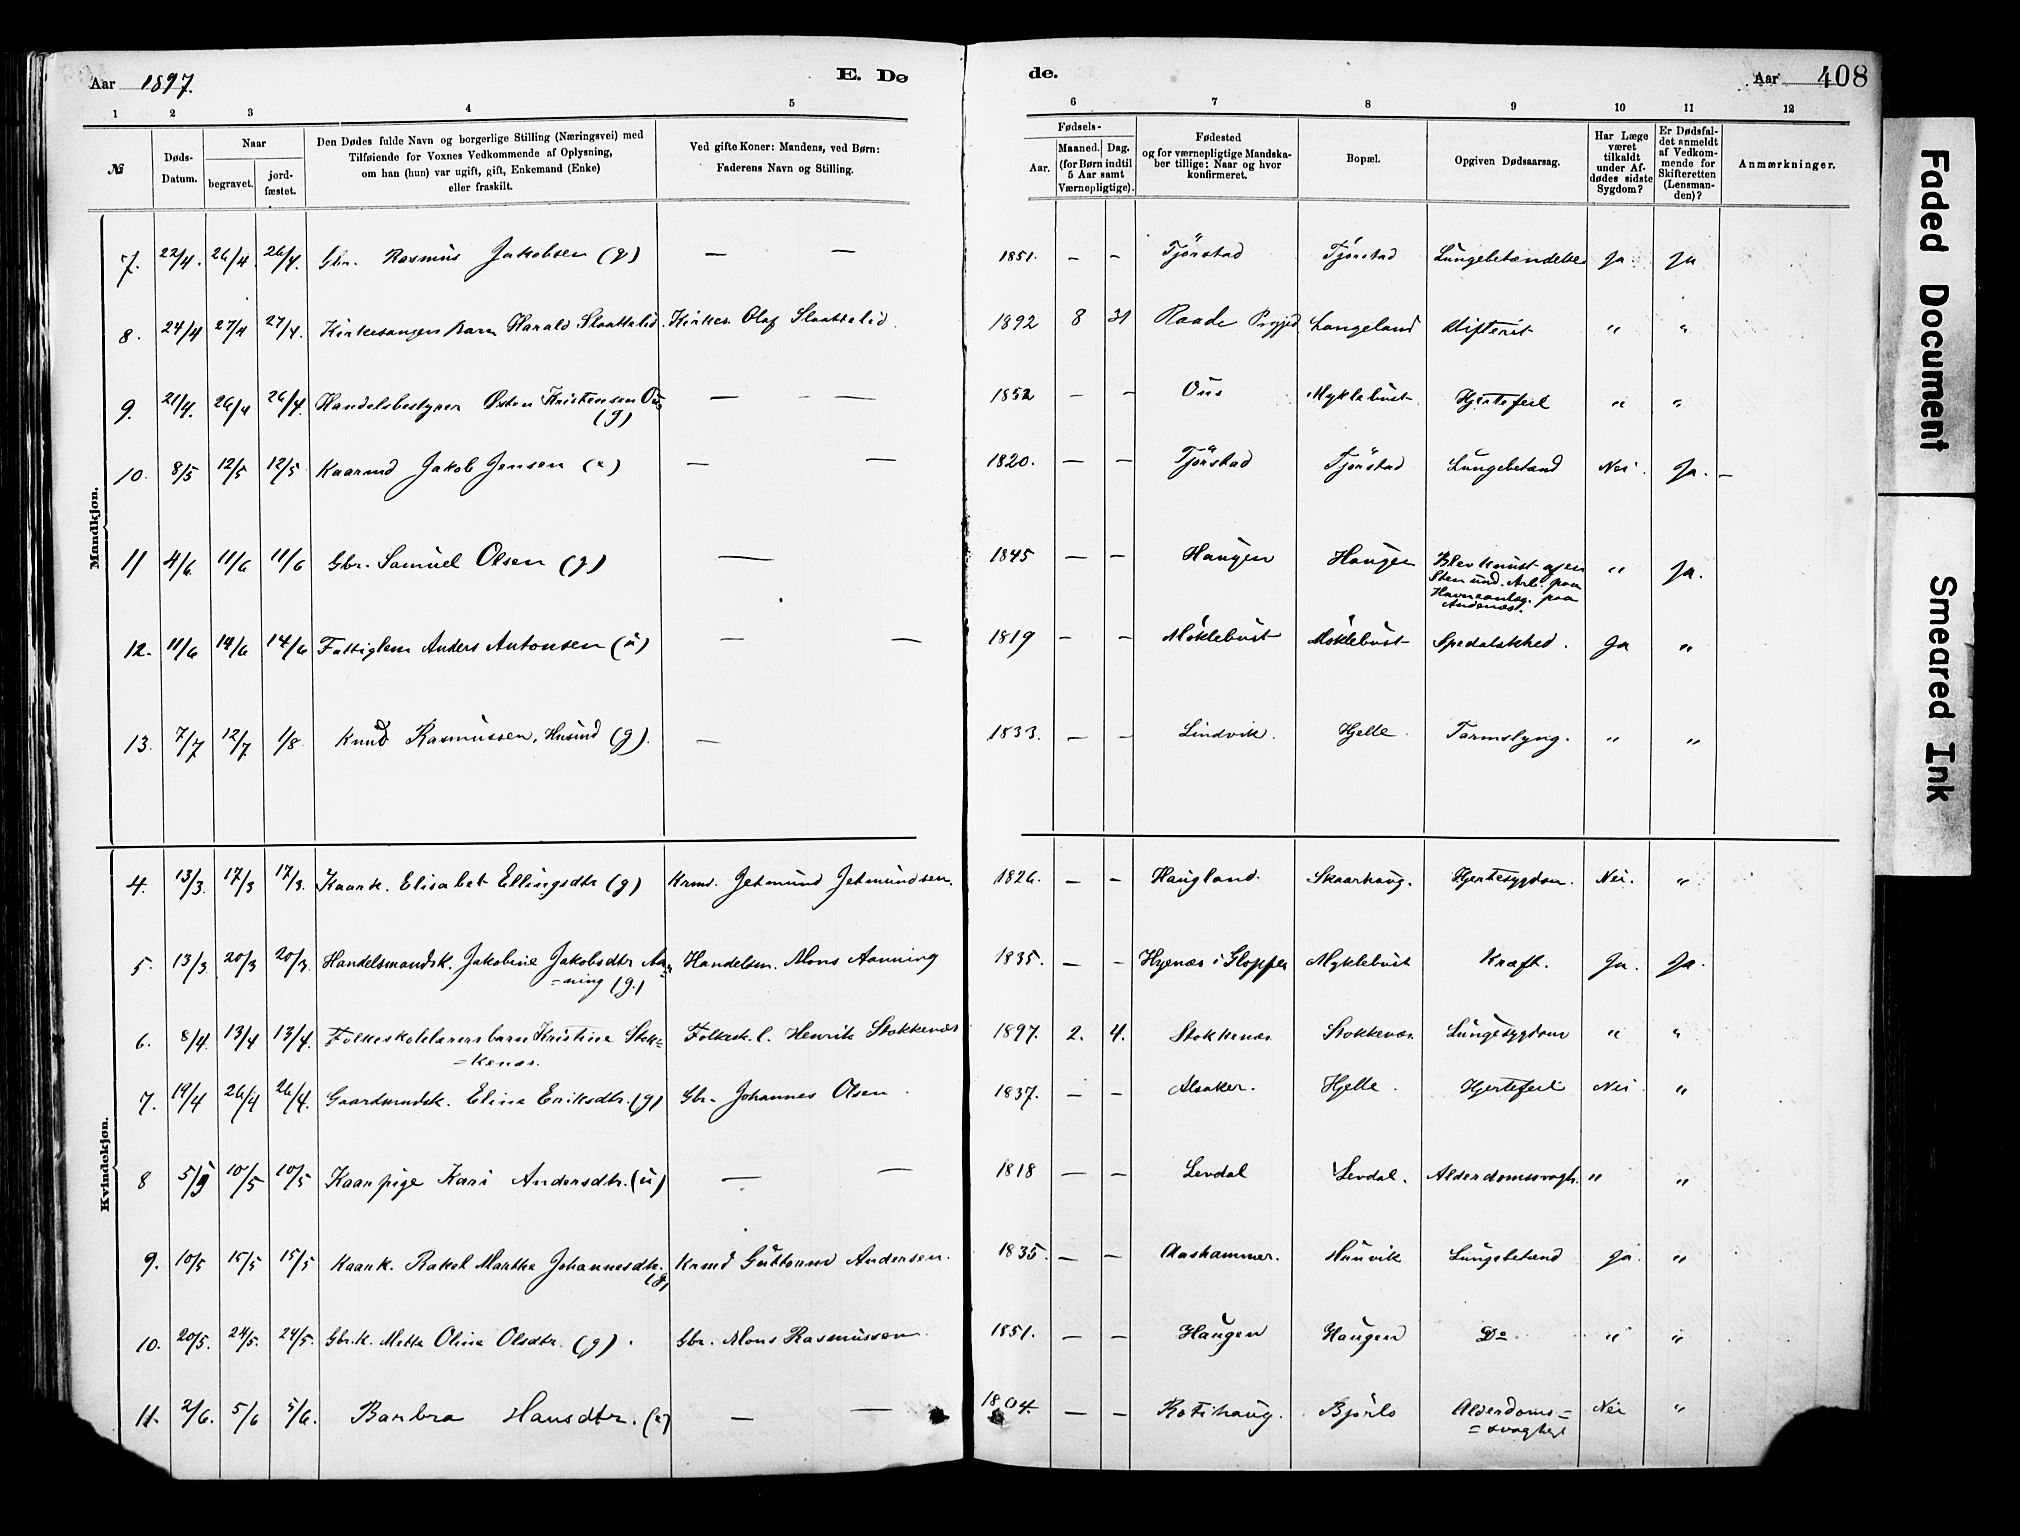 Aar 1897.
E. Dø
de.
Aar 408
1 2 3 4 5 6 7 8 9 10 11 12
№
Døds-Datum.
Naar
begravet.
jord-fæstet.
Den Dødes fulde Navn og borgerlige Stilling (Næringsvei) med
Tilføiende for Voxnes Vedkommende af Oplysning,
om han (hun) var ugift, gift, Enkemand (Enke)
eller fraskilt.
Ved gifte Koner: Mandens, ved Børn:
Faderens Navn og Stilling.
Fødsels-
Aar.
Maaned. Dag.
(for Børn indtil
5 Aar samt
Værnepligtige).
Fødested
og for værnepligtige Mandska-
ber tillige: Naar og hvor
konfirmeret.
Bopæl.
Opgiven Dødsaarsag.
Har Læge
været
tilkaldt
under Af-
dødes sidste
Sygdom?
Er Dødsfal-
det anmeldt
af Vedkom-
mende for
Skifteretten
(Lensman-
den)?
Anmærkninger.
Mandkjøn.
7. 22/4. 26/4. 26/4. Gbr. Rasmus Jakobsen (g) — — 1851. – – Tjörstad Tjörstad Lungebetændelse Ja Ja
8. 24/4 27/4 27/4. Kirkesangers Barn Harald Slaattelid. Kirkes. Olaf Slaattelid. 1892 8 31 Raade Prgjed Langeland Difterit " "
9. 21/4. 26/4 26/4. Handelsbestyrer Østen Kristensen Ous
(g) — - — 1852 – – Ous Myklebust Hjertefeil " "
10. 8/5 12/5 12/5. Kaarmd Jakob Jensen (e) — — 1820. — – Tjörstad Tjörstad Lungebetænd Nei. Ja. –
11 4/6. 11/6 11/6 Gbr. Samuel Olsen (g) — 1845 — – Haugen Haugen Blev knust af en
Sten und. Arb. paa
Havneanlæg. paa
Andenæs. " Ja.
12. 11/6 14/6 14/6 Fattiglem Anders Antonsen (u) — — 1819 – – Möklebust Möklebust Spedalskhed. Ja "
13. 7/7 12/7 1/8 Knud Rasmussen, Husmd (g). — 1833. — – Lindvik. Hjelle. Tarmslyng. " "
Kvindekjøn.
4. 13/3. 17/3 17/3. Kaark. Elisabet Ellingsdtr (g) Krmd. Jetmund Jetmundsen. 1826. – – Haugland. Skaarhaug. Hjertesygdom. Nei. "
5. 13/3 20/3 20/3. Handelsmandsk. Jakobine Jakobsdtr Aa=
=ning (g.) Handelsm. Mons Aanning 1835. – – Hyenæs i Gloppen Myklebust Kræft. Ja. Ja.
6. 8/4. 13/4 13/4. Folkeskolelærersbarn Kristine Stok=
=kenæs. Folkesk.l. Henrik Stokkenæs 1897. 2. 4. Stokkenæs Stokkenæs. Lungesygdom " "
7. 19/4 26/4 26/4. Gaardmndsk. Eline Eriksdtr. (g) Gbr. Johannes Olsen. 1837. – – Alsaker. Hjelle. Hjertefeil Nei "
8 5/5 10/5 10/5 Kaarpige Kari Andersdtr. (u) — — 1818 — – Levdal Levdal. Alderdomssvagh. " "
9. 10/5 15/5 15/5 Kaark. Rakel Marthe Johannesdtr.
(g) Krmd Guttorm Andersen. 1835. — – Aashammer. Hunvik Lungebetænd Ja. "
10. 20/5. 24/5. 24/5. Gbr.k. Mette Oline Olsdtr. (g). Gbr. Mons Rasmussen. 1851. – – Haugen Haugen Do " "
11. 2/6. 5/6 5/6. Barbra Hansdtr. (e) — — 1804. — – Kotihaug. Bjørlo Alderdoms=
=svaghed Nei "
Faded Document
Smeared Ink